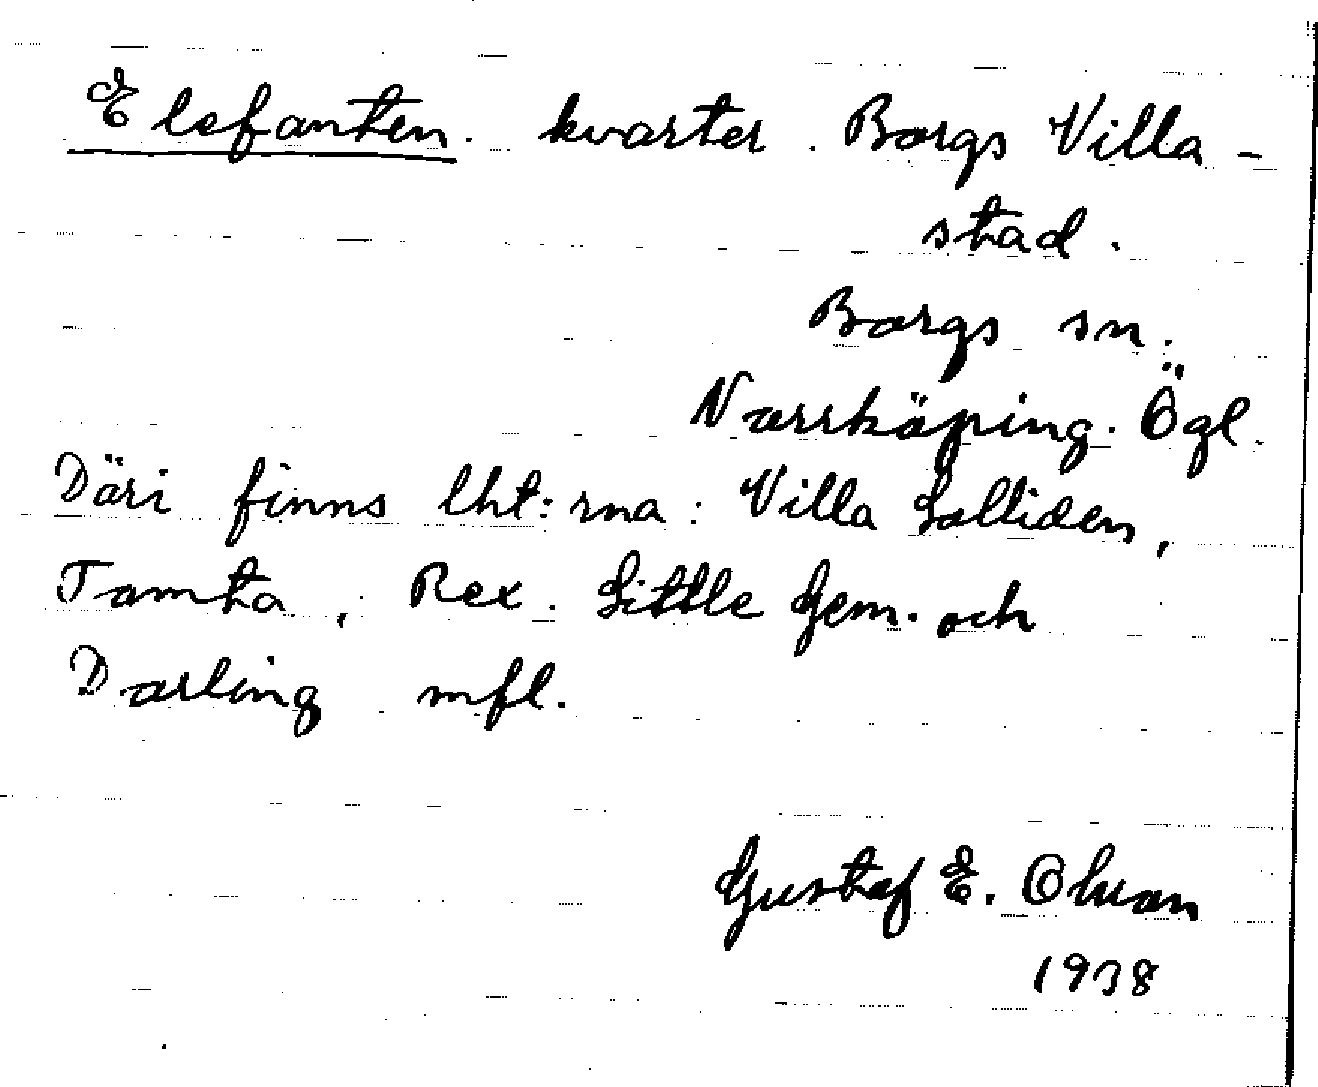 Elefanten. kvarter. Borgs Villa-
stad.
Borgs sn.
Norrköping. Ögl.
Däri finns lht:rna: Villa Solliden,
Tomta, Rex. Little Gem. och
Darling mfl.
Gustaf E. Olson
1938